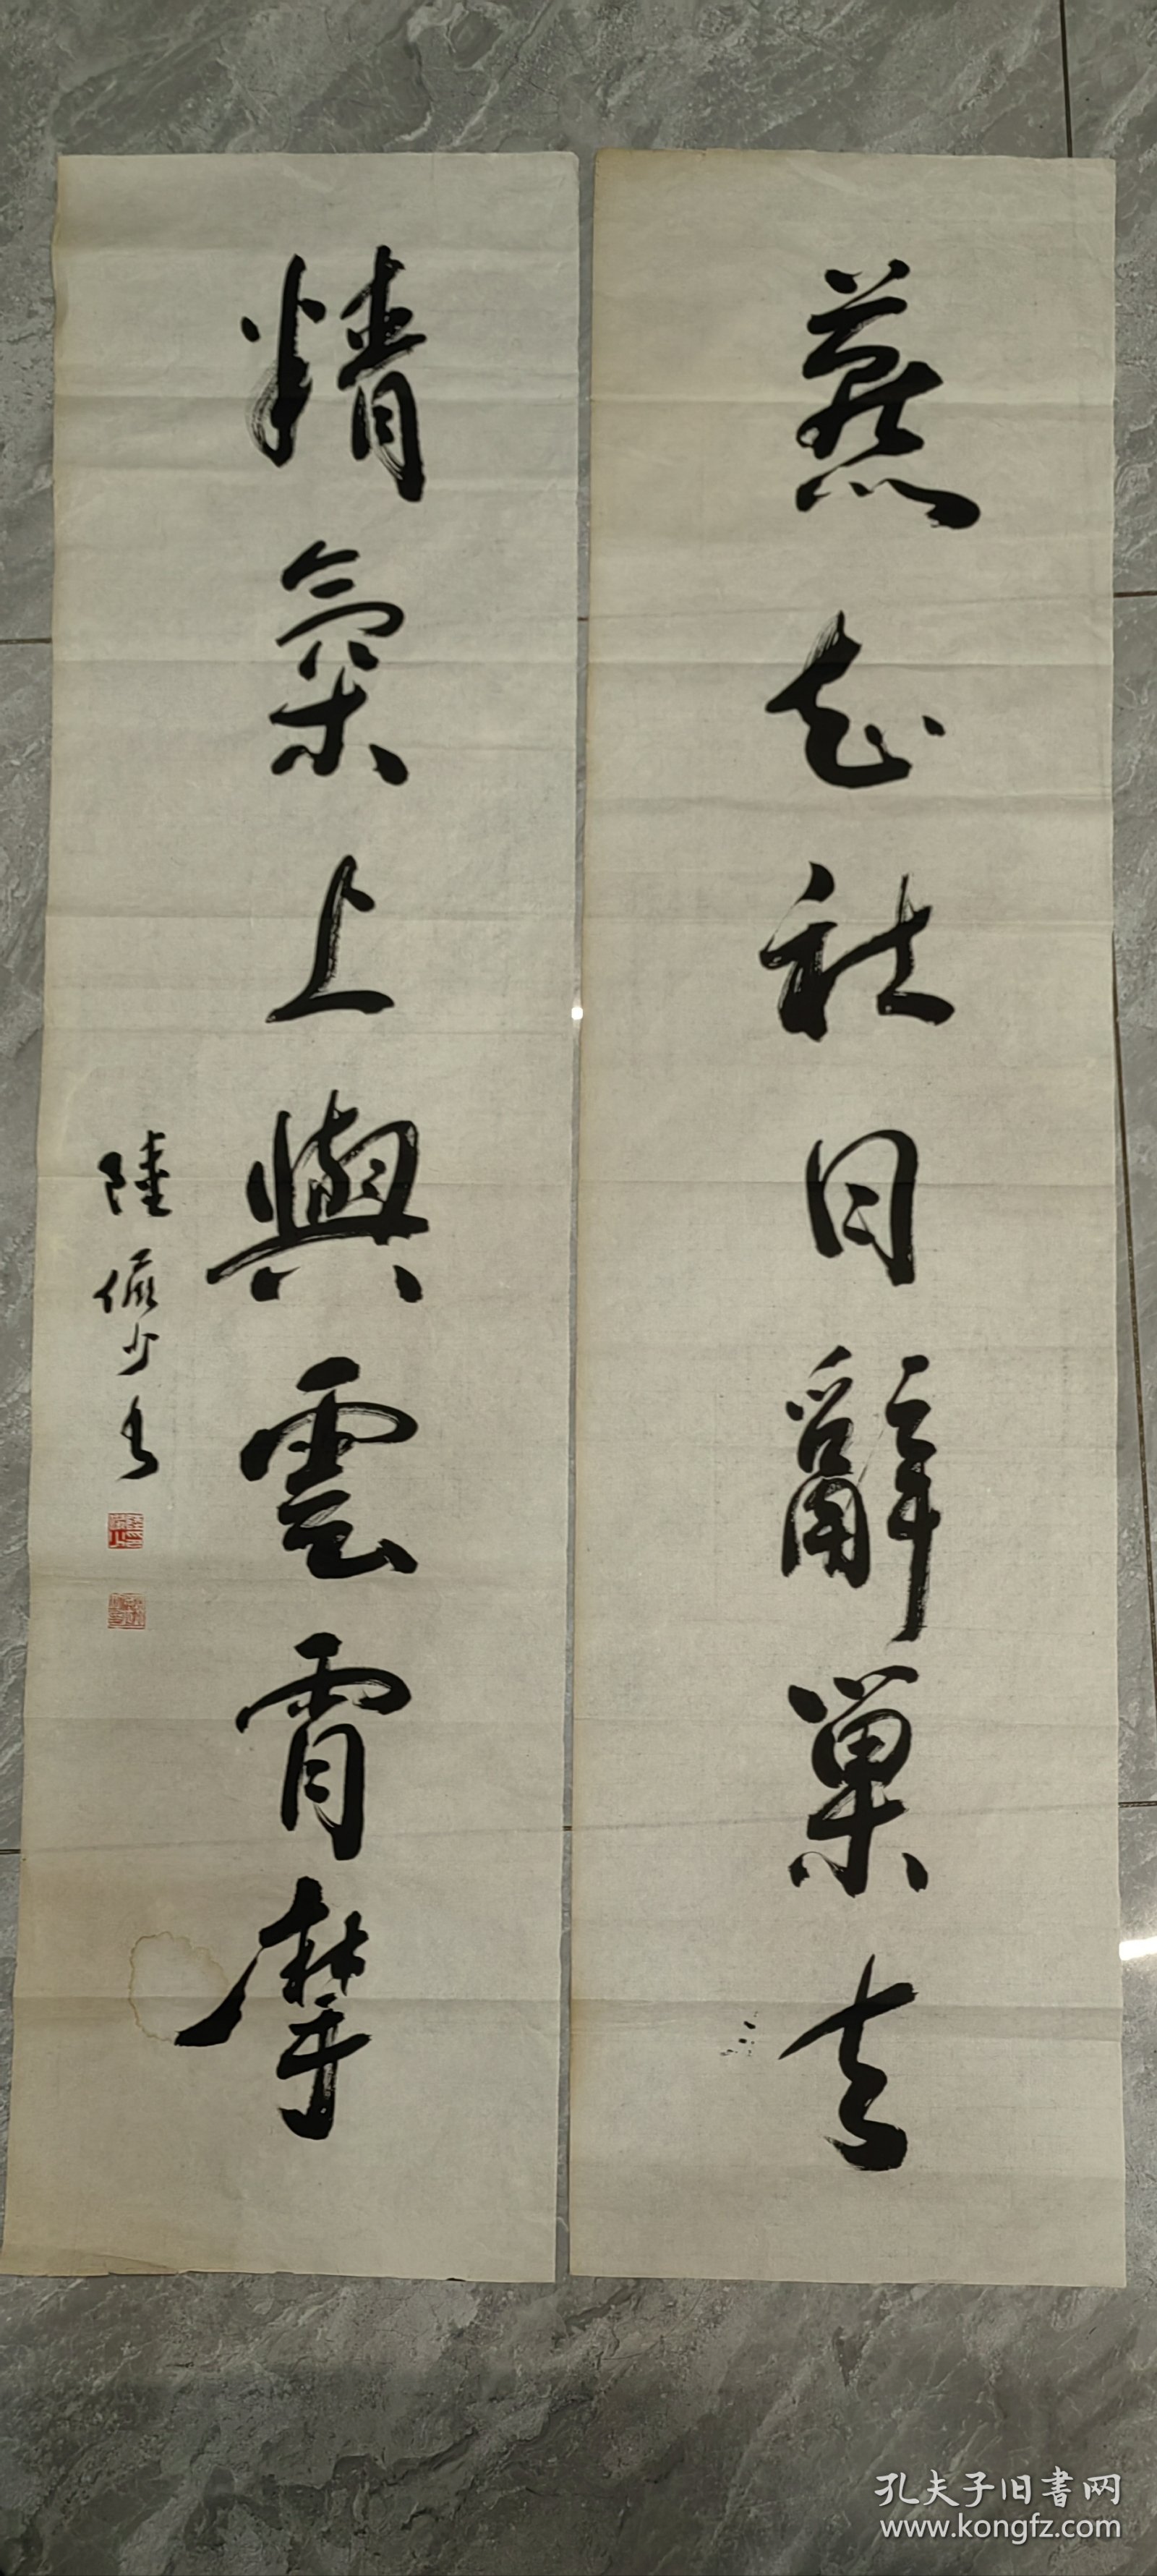 燕知社日辭巢去
精氣上與雲霄摩
陸儼少书
孔夫子旧书网
www.kongfz.com